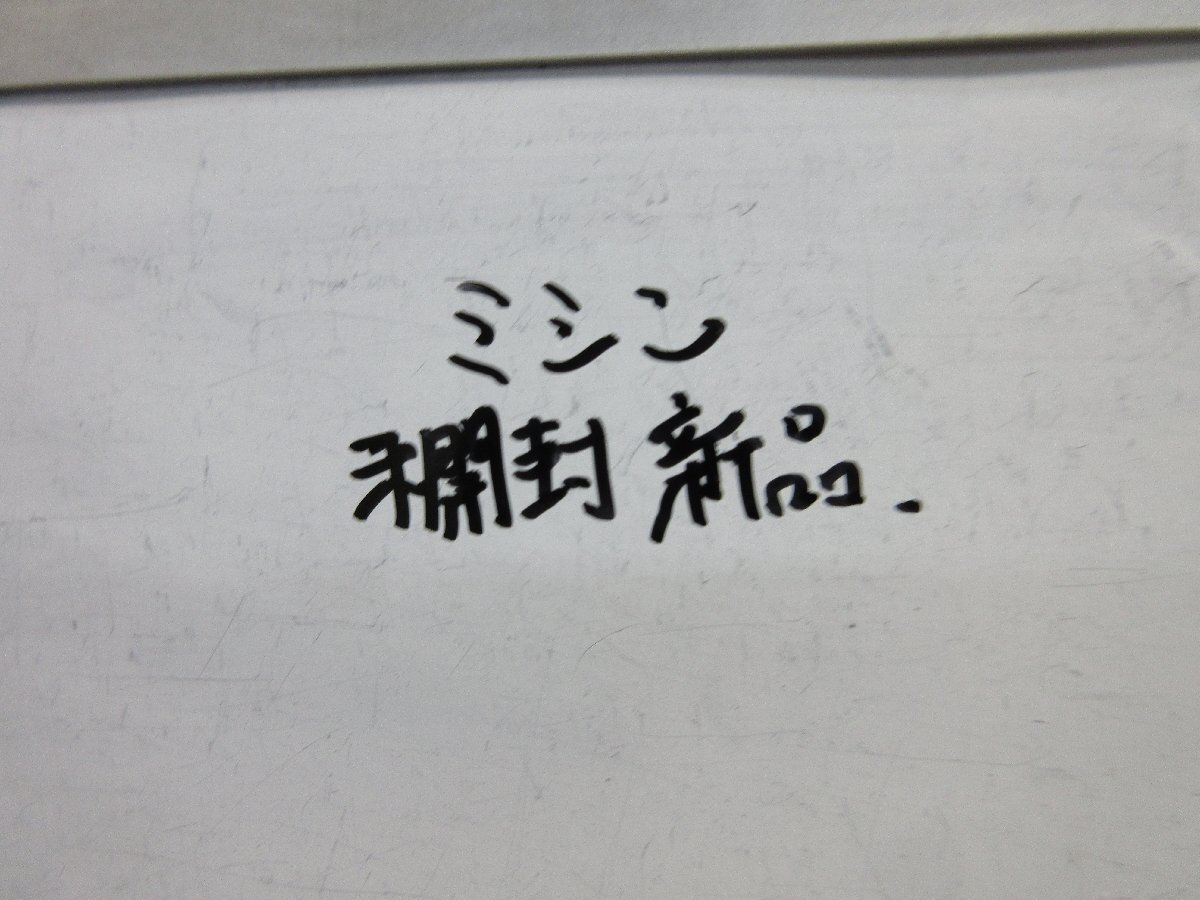 ミシン
未開封 新品.